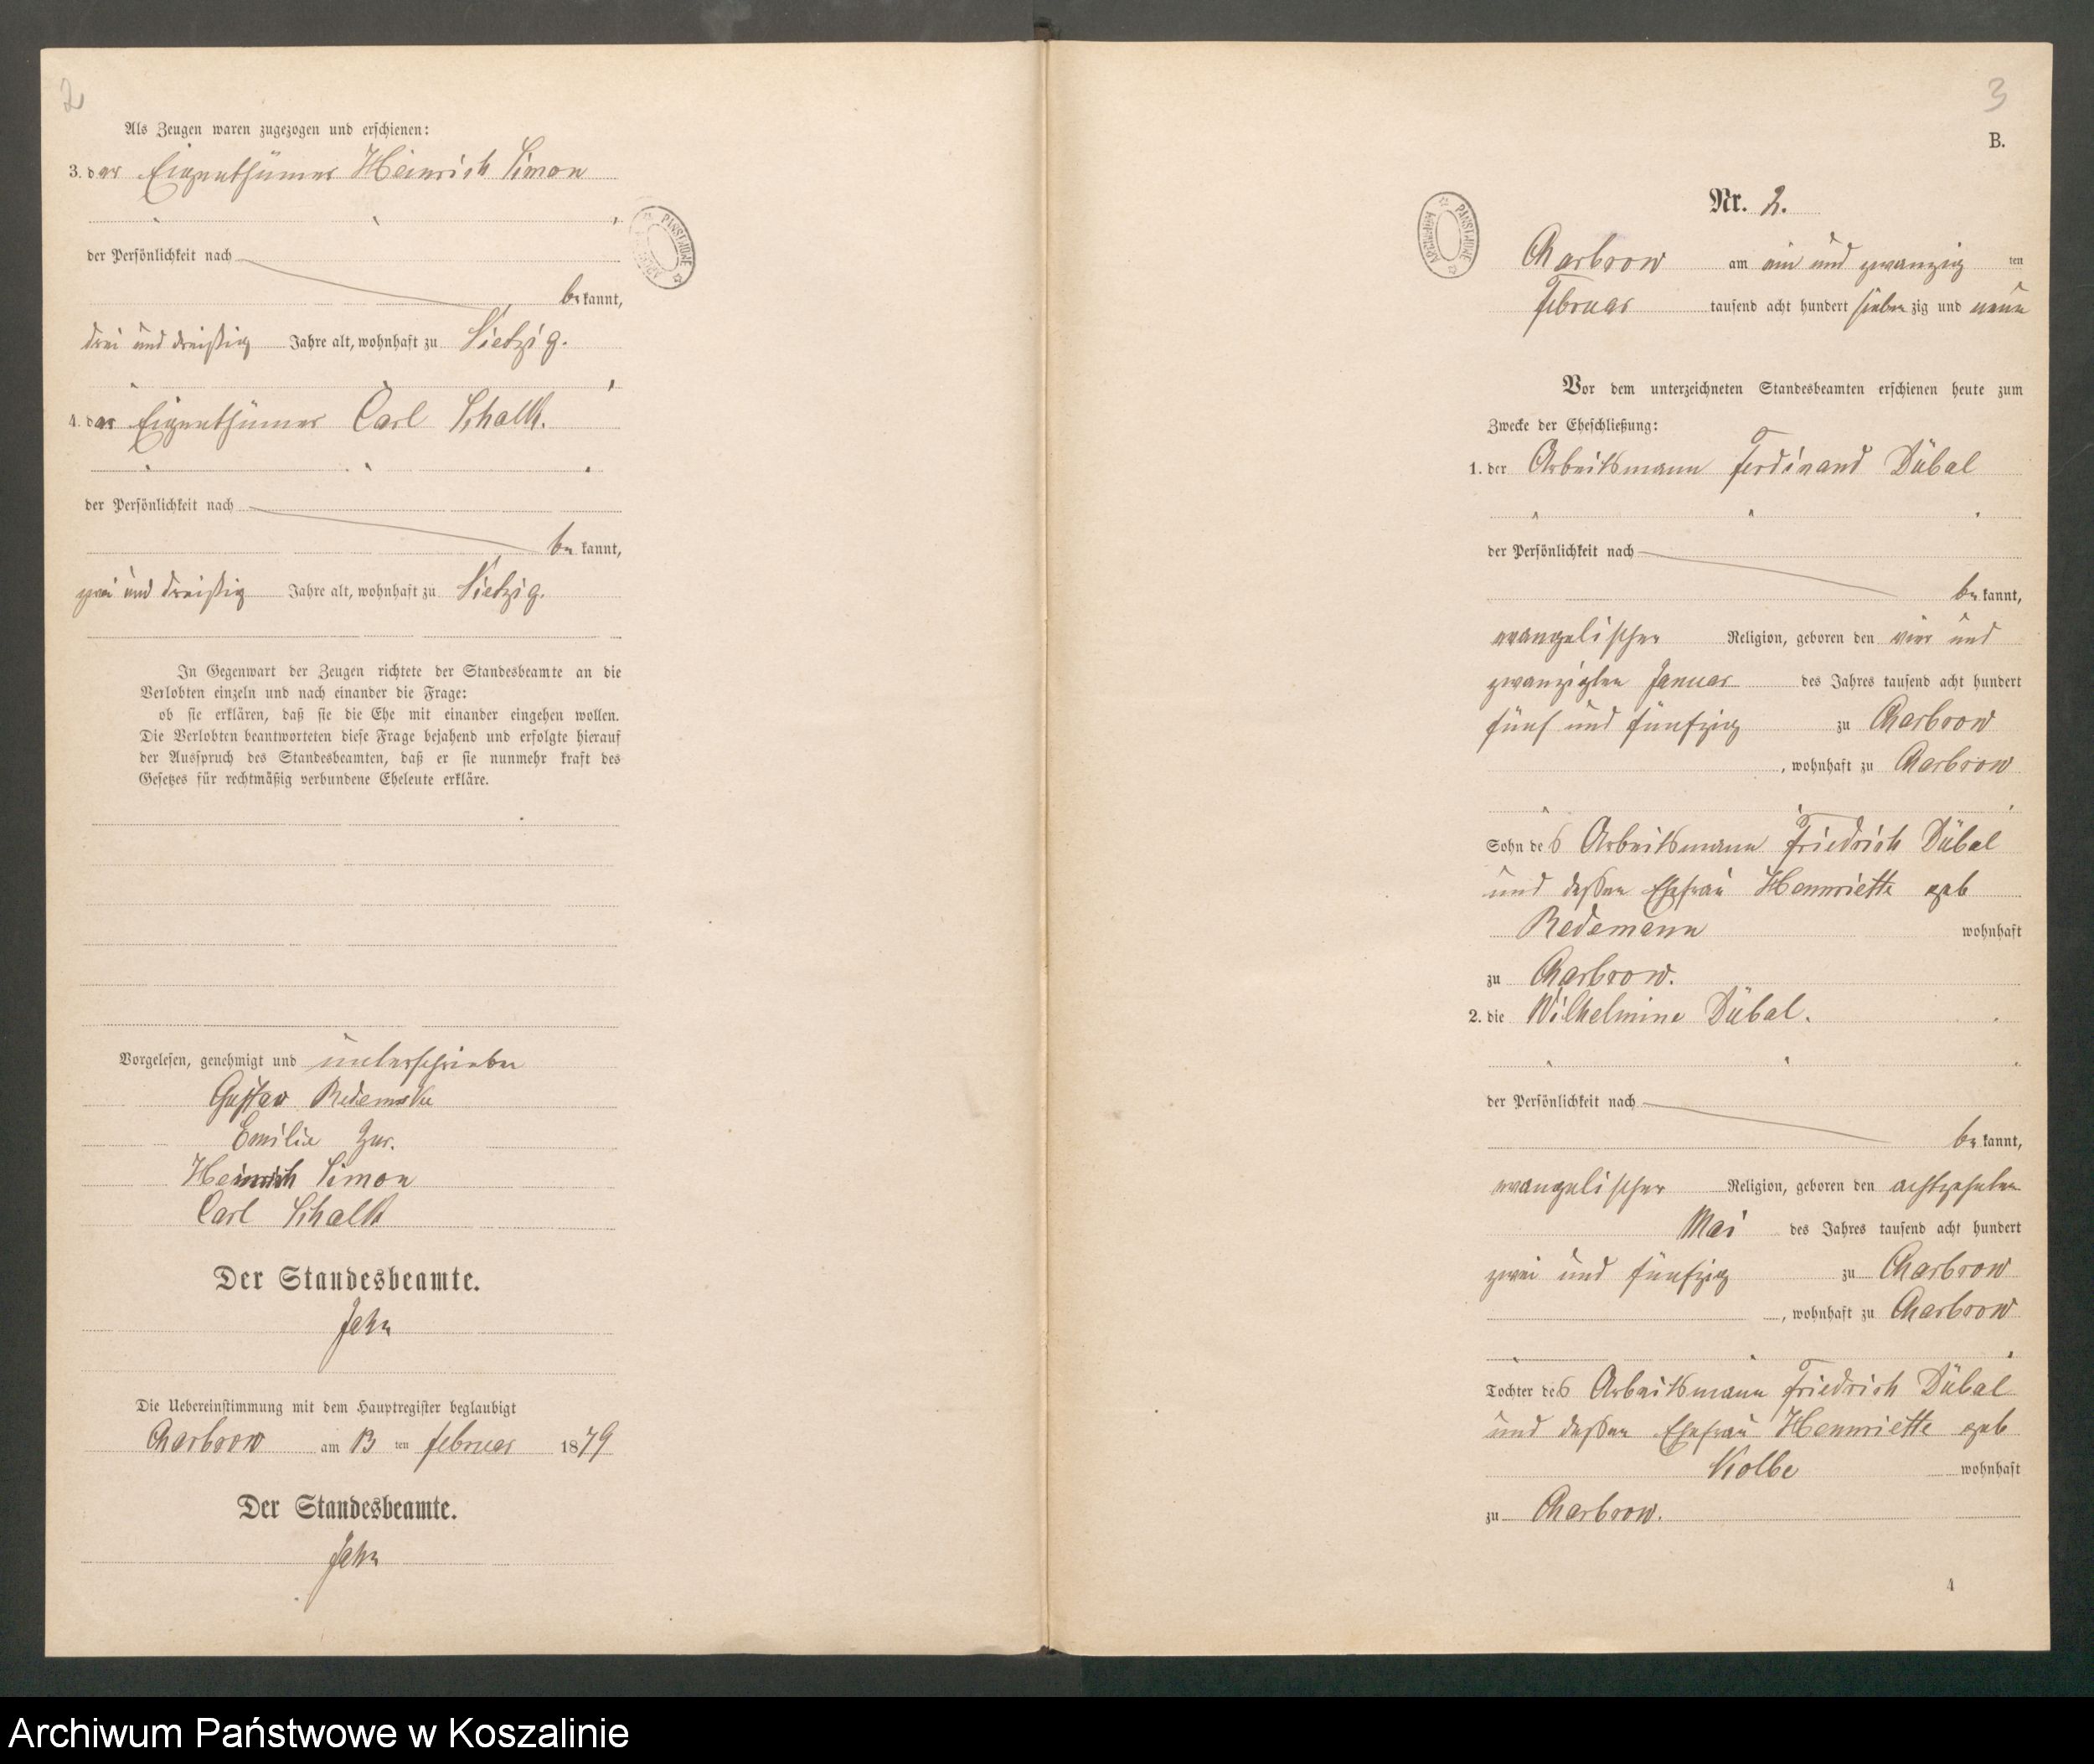 2
Als Zeugen waren zugezogen und erschienen:
3. der Eigenthümer Heinrich Simon
der Persönlichkeit nach
be kannt,
drei und dreißig Jahre alt, wohnhaft zu Vietzig.
4. der Eigenthümer Carl Schalk.
der Persönlichkeit nach
be kannt,
zwei und dreißig Jahre alt, wohnhaft zu Vietzig.
In Gegenwart der Zeugen richtete der Standesbeamte an die
Verlobten einzeln und nach einander die Frage:
ob sie erklären, daß sie die Ehe mit einander eingehen wollen.
Die Verlobten beantworteten diese Frage bejahend und erfolgte hierauf
der Ausspruch des Standesbeamten, daß er sie nunmehr kraft des
Gesetzes für rechtmäßig verbundene Eheleute erkläre.
Vorgelesen, genehmigt und unterschrieben
Gustav
Emilie
Heinrich Simon
Carl Schalk
Der Standesbeamte.
Jahn
Die Uebereinstimmung mit dem Hauptregister beglaubigt
Charbrow am 13 ten Februar 1879
Der Standesbeamte.
Jahn
ARCHIWUM PAŃSTWOWE
3
B.
Nr. 2.
Charbrow am ein und zwanzig ten
Februar tausend acht hundert sieben zig und neun
Vor dem unterzeichneten Standesbeamten erschienen heute zum
Zwecke der Eheschließung:
1. der Arbeitsmann Ferdinand Dübal
der Persönlichkeit nach
be kannt,
evangelischer Religion, geboren den vier und
zwanzigsten Januar des Jahres tausend acht hundert
fünf und fünfzig zu Charbrow
, wohnhaft zu Charbrow
Sohn des Arbeitsmann Friedrich Dübal
und dessen Ehefrau Hennriette geb
Redemann wohnhaft
zu Charbrow.
2. die Wilhelmine Dübal.
der Persönlichkeit nach
be kannt,
evangelischer Religion, geboren den achtzehnten
Mai des Jahres tausend acht hundert
zwei und fünfzig zu Charbrow
, wohnhaft zu Charbrow
Tochter des Arbeitsmann Friedrich Dübal
und dessen Ehefrau Hennriette geb
Kolbe wohnhaft
zu Charbrow.
ARCHIWUM PAŃSTWOWE
Archiwum Państwowe w Koszalinie